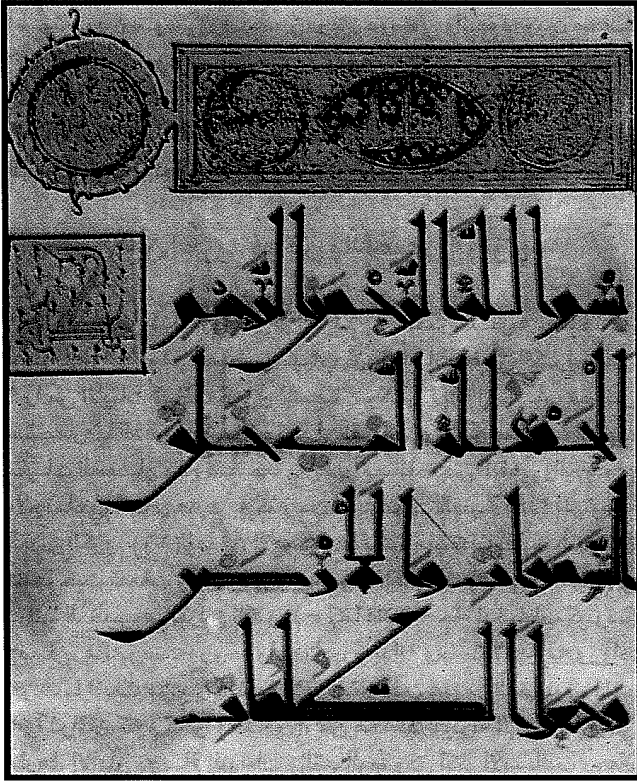 بسم الله الرحمن الرحيم
الحمد لله الذي خلق
السموات والارض
وجعل الظلمات